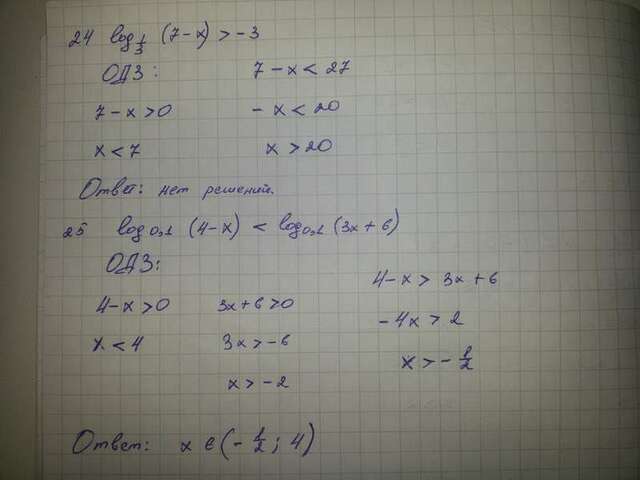 24 log 1/3 (7-x) > -3
ОДЗ: 7-x < 27
7-x>0 -x < 20
x<7 x > 20
Ответ: нет решений.
25 log0,1 (4-x) < log0,1 (3x+6)
ОДЗ:
4-x > 3x+6
4-x>0 3x+6>0
-4x > 2
x<4 3x>-6
x > -1/2
x>-2
Ответ: x ∈ (-1/2; 4)